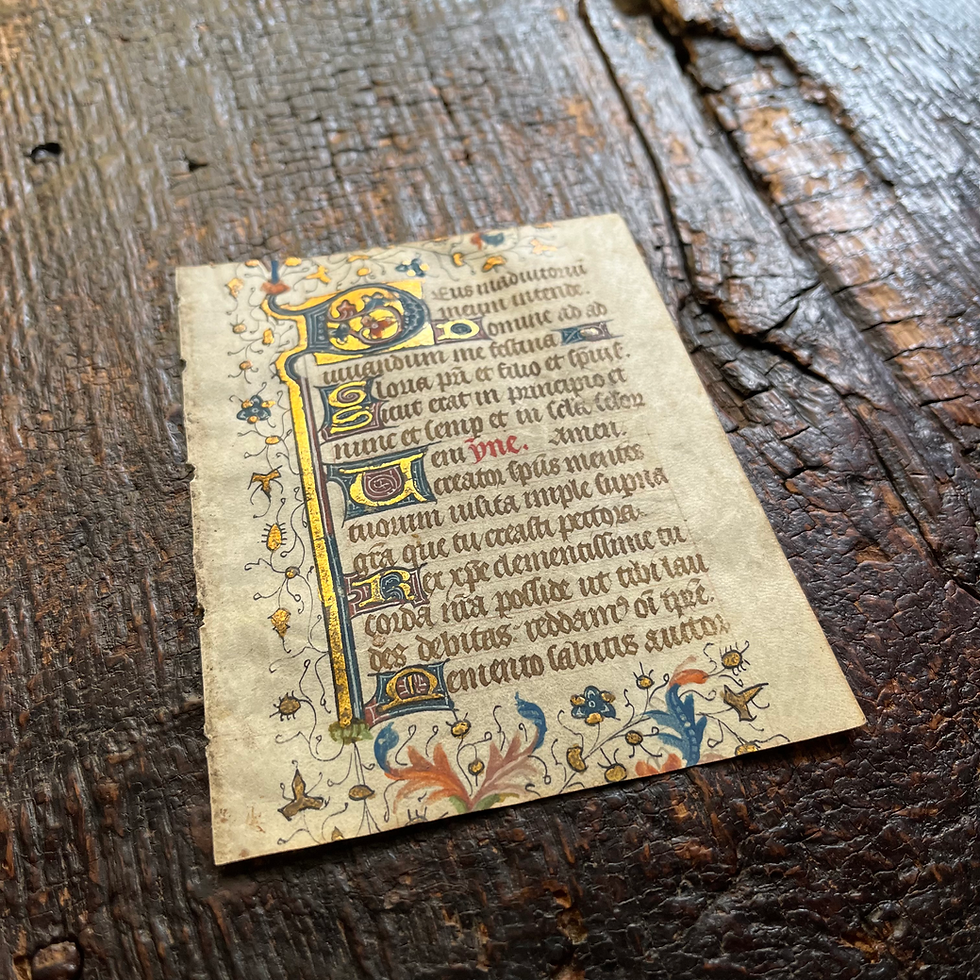 Deus in adiutoriū
meum intende.
Domine ad ad
iuuandum me festina
Gloria pr̄i et filio et sp̄ui s.
Sicut erat in principio et
nunc et semp et in sc̄la sclor
ym̄ne. Amen.
Ueni creator sp̄us mentes
tuorum uisita imple sup̄na
gr̄a que tu creasti pectora.
Rex xp̄e clementissime tu
corda nr̄a posside ut tibi lau
des debitas reddamꝰ oī tp̄re.
Memento salutis auctor